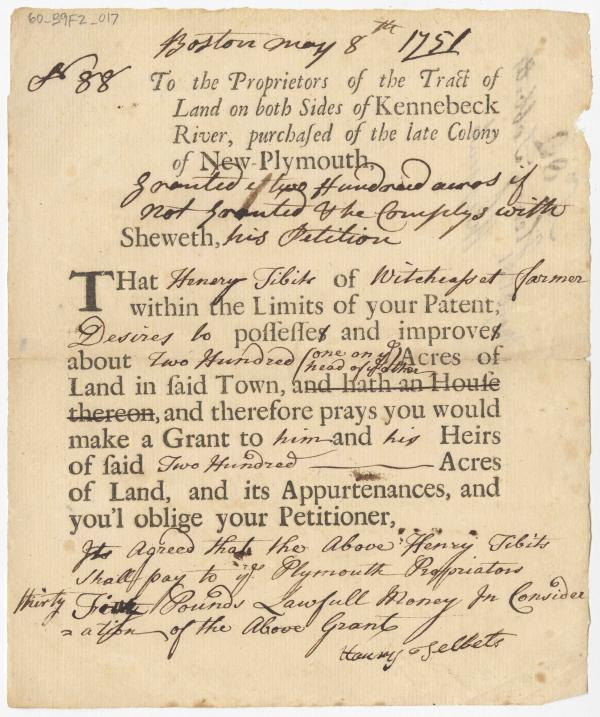 60-B9F2_017
Boston may 8th 1751
No 88
To the Proprietors of the Tract of
Land on both Sides of Kennebeck
River, purchaſed of the late Colony
of New-Plymouth,
Granted two Hundred acres if
not Granted & he Complys with
Sheweth, his Petition
THat Henery Tibits of Witchcasset farmer
within the Limits of your Patent,
Desires to poſſeſſes and improves
about Two Hundred (one on ye Acres of
head of ye other)
Land in ſaid Town, and hath an Houſe
thereon, and therefore prays you would
make a Grant to him and his Heirs
of ſaid Two Hundred Acres
of Land, and its Appurtenances, and
you'l oblige your Petitioner,
Its Agreed that the Above Henry Tibits
Shall pay to ye Plymouth Propriators
thirty Five Pounds Lawfull Money In Consider
=ation of the Above Grant
Henry Tebbets